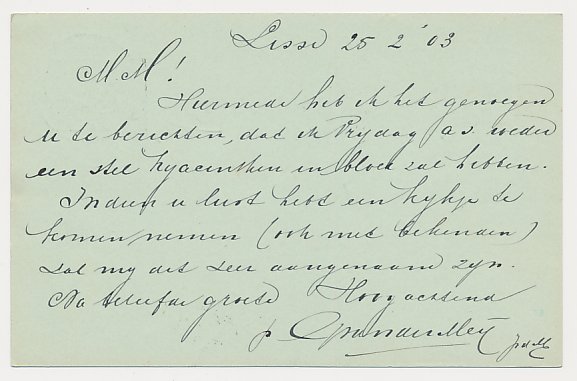 Lisse 25 2 '03
M M!
Hiermede heb ik het genoegen
u te berichten, dat ik Vrydag a.s. weder
een stel hyacinthen in bloei zal hebben.
Indien u lust hebt een kykje te
komen nemen (ook met bekenden)
zal my dit zeer aangenaam zyn.
Na beleefde groete Hoogachtend
p vander Mey